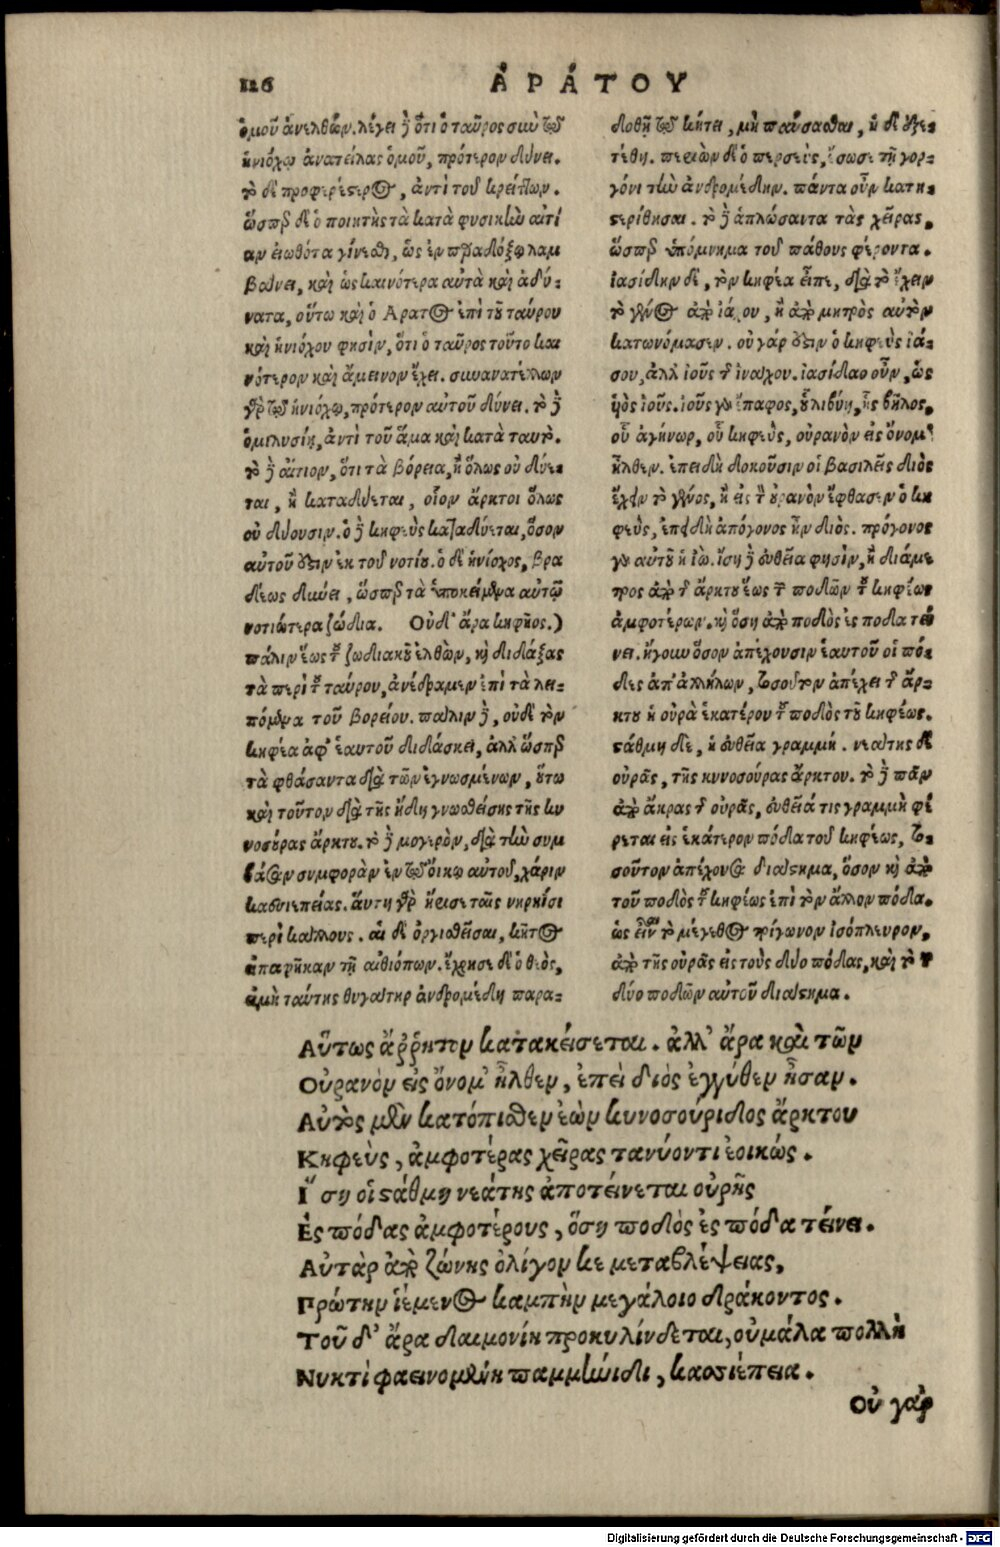 126
ἈΡΆΤΟΥ
ὁμοῦ ἀνελθών. λέγει δὲ ὅτι ὁ ταῦρος σὺν τῷ
ἡνιόχῳ ἀνατείλας ὁμοῦ, πρότερον δύνει.
τὸ δὲ προφερέστερος, ἀντὶ τοῦ κρείττων.
ὥσπερ δὲ ὁ ποιητὴς τὰ κατὰ φυσικὴν αἰτί
αν εἰωθότα γίνεσθαι, ὡς ἐν παραδόξῳ λαμ
βάνει, καὶ ὡς καινότερα αὐτὰ καὶ ἀδύ-
νατα, οὕτω καὶ ὁ Αρατος ἐπὶ τοῦ ταύρου
καὶ ἡνιόχου φησὶν, ὅτι ὁ ταῦρος τοῦτο και
νότερον καὶ ἄμεινον ἔχει. συνανατέλλων
γὰρ τῷ ἡνιόχῳ, πρότερον αὐτοῦ δύνει. τὸ δὲ
ὁμιλυσίη, ἀντὶ τοῦ ἅμα καὶ κατὰ ταυτό.
τὸ δὲ αἴτιον, ὅτι τὰ βόρεια, ἢ ὅλως οὐ δύε-
ται, ἢ καταδύεται, οἷον ἄρκτοι ὅλως
οὐ δύουσιν. ὁ δὲ κηφεὺς καταδύεται, ὅσον
αὐτοῦ ἐστιν ἐκ τοῦ νοτίου. ὁ δὲ ἡνίοχος, βρα
δέως δύνει, ὥσπερ τὰ ὑποκείμενα αὐτῷ
νοτιώτερα ζώδια. Οὐδ' ἄρα κηφῆος.)
πάλιν ἕως τοῦ ζωδιακοῦ ἐλθὼν, καὶ διδάξας
τὰ περὶ τοῦ ταύρου, ἀνέδραμεν ἐπὶ τὰ λει-
πόμενα τοῦ βορείου. πάλιν δὲ, οὐδὲ τὸν
κηφέα ἀφ' ἑαυτοῦ διδάσκει, ἀλλ' ὥσπερ
τὰ φθάσαντα διὰ τῶν ἐγνωσμένων, οὕτω
καὶ τοῦτον διὰ τῆς ἤδη γνωσθείσης τῆς κυ
νοσούρας ἄρκτου. τὸ δὲ μογερὸν, διὰ τὴν συμ
βᾶσαν συμφορὰν ἐν τῷ οἴκῳ αὐτοῦ, χάριν
κασσιεπείας. αὕτη γὰρ ἤρισε ταῖς νηρηΐσι
περὶ κάλλους. αἱ δὲ ὀργισθεῖσαι, κῆτος
ἐπαφῆκαν τῇ αἰθιόπων. ἔχρησε δὲ ὁ θεὸς,
εἰ μὴ ταύτης θυγάτηρ ἀνδρομέδη παρα-
δοθῇ τῷ κήτει, μὴ παύσασθαι, ἡ δὲ ἐξε-
τέθη. περιὼν δὲ ὁ περσεὺς, ἔσωσε τῇ γορ-
γόνι τὴν ἀνδρομέδην. πάντα οὖν κατη-
στερίσθησαν. τὸ δὲ ἁπλώσαντα τὰς χεῖρας,
ὥσπερ ὑπόμνημα τοῦ πάθους φέροντα.
ἰασίδην δὲ, τὸν κηφέα εἶπε, διὰ τὸ ἔχειν
τὸ γένος ἀπὸ ἰάσου, ἢ ἀπὸ μητρὸς αὐτὸν
κατωνόμασεν. οὐ γάρ ἐστιν ὁ κηφεὺς ἰά-
σου, ἀλλ' ἰοῦς τῆς ἰνάχου. ἰασίδαο οὖν, ὡς
ἠὸς ἰοῦς. ἰοῦς γὰρ ἔπαφος, οὗ λιβύη, ἧς βῆλος,
οὗ ἀγήνωρ, οὗ κηφεὺς, οὐρανὸν εἰς ὄνομ'
ἦλθεν. ἐπειδὴ δοκοῦσιν οἱ βασιλεῖς διὸς
ἔχειν τὸ γένος, ἢ εἰς τὸν οὐρανὸν ἔφθασεν ὁ κη
φεὺς, ἐπειδὴ ἀπόγονος ἦν διός. πρόγονος
γὰρ αὐτοῦ ἡ ἰώ. ἴση δὲ εὐθεῖα φησὶν, ἢ διάμε
τρος ἀπὸ τῆς ἄρκτου ἕως τῶν ποδῶν τοῦ κηφέως
ἀμφοτέρων. καὶ ὅση ἀπὸ ποδὸς ἐς πόδα τεί
νει. ἤγουν ὅσον ἀπέχουσιν ἑαυτοῦ οἱ πό-
δες ἀπ' ἀλλήλων, τοσοῦτον ἀπέχει τῆς ἄρ-
κτου ἡ οὐρὰ ἑκατέρου τοῦ ποδὸς τοῦ κηφέως.
στάθμη δὲ, ἡ εὐθεῖα γραμμή. νεάτης δὲ
οὐρᾶς, τῆς κυνοσούρας ἄρκτου. τὸ δὲ πᾶν
ἀπὸ ἄκρας τῆς οὐρᾶς, εὐθεῖά τις γραμμὴ φέ
ρεται εἰς ἑκάτερον πόδα τοῦ κηφέως, το-
σοῦτον ἀπέχουσα διάστημα, ὅσον καὶ ἀπὸ
τοῦ ποδὸς τοῦ κηφέως ἐπὶ τὸν ἄλλον πόδα.
ὡς εἶναι τὸ μέγεθος τρίγωνον ἰσόπλευρον,
ἀπὸ τῆς οὐρᾶς εἰς τοὺς δύο πόδας, καὶ τὸ τ
δύο ποδῶν αὐτοῦ διάστημα.
Αὕτως ἄῤῥητον κατακείσεται. ἀλλ' ἄρα καὶ τῶν
Οὐρανὸν εἰς ὄνομ' ἦλθεν, ἐπεὶ διὸς ἐγγύθεν ἦσαν.
Αὐτὸς μὲν κατόπισθεν ἐὼν κυνοσούριδος ἄρκτου
Κηφεὺς, ἀμφοτέρας χεῖρας τανύοντι ἐοικώς.
Ἴση οἱ στάθμη νεάτης ἀποτείνεται οὐρῆς
Ἐς πόδας ἀμφοτέρους, ὅση ποδὸς ἐς πόδα τείνει.
Αὐτὰρ ἀπὸ ζώνης ὀλίγον κε μεταβλέψειας,
Πρώτην ἱέμενος καμπὴν μεγάλοιο δράκοντος.
Τοῦ δ' ἄρα δαιμονίη προκυλίνδεται, οὐ μάλα πολλὴ
Νυκτὶ φαεινομένη παμμήνιδι, κασσιέπεια.
Οὐ γὰρ
Digitalisierung gefördert durch die Deutsche Forschungsgemeinschaft - DFG